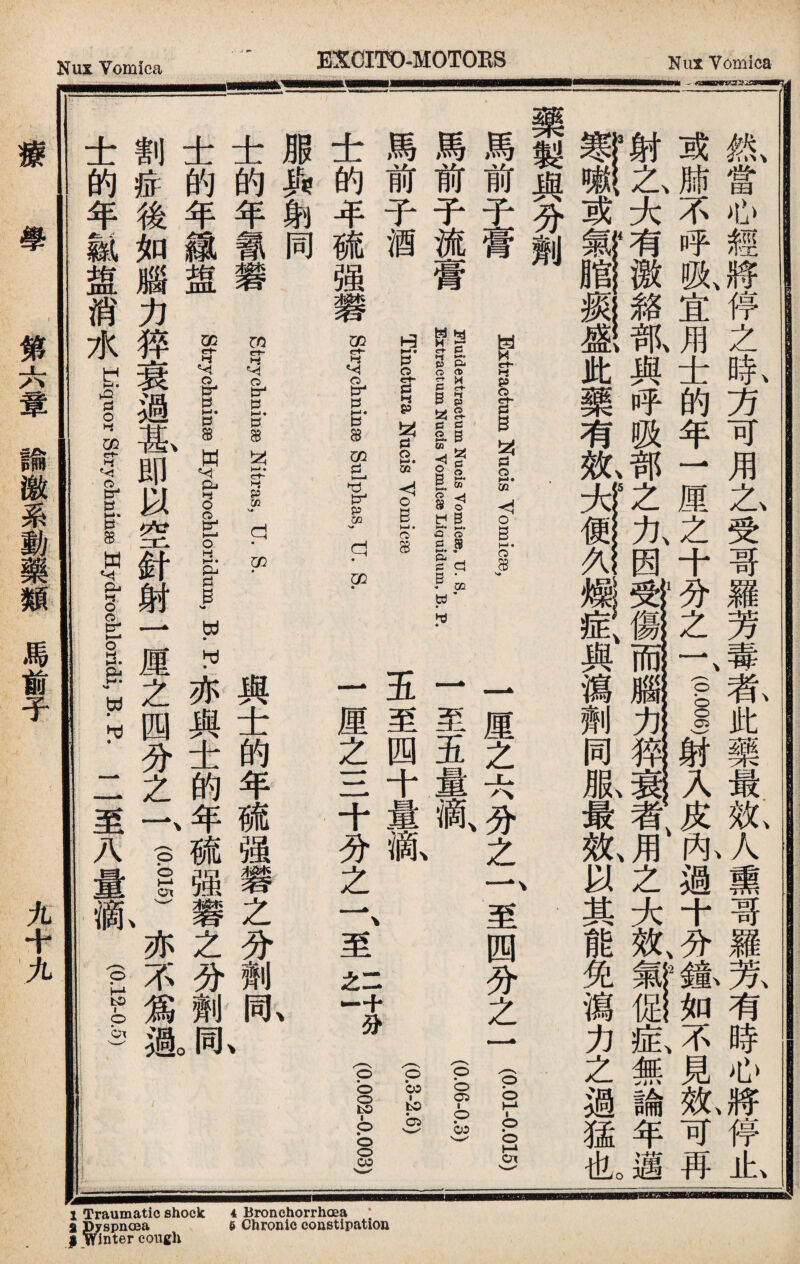 Nux Vomica
EXCITO-MOTORS
Nux Vomica
然、當心經將停之時、方可用之、受哥羅芳毒者、此藥最效、人熏哥羅芳、有時心將停止、
或肺不呼吸、宜用士的年一厘之十分之一、(0.006)射入皮內、過十分鐘、如不見效、可再
射之、大有激絡部、與呼吸部之力、因受1傷而腦力猝衰者、用之大效、氣2促症、無論年邁
寒3嗽、或氣4館痰盛、此藥有效、大5便久燥症、與瀉劑同服、最效、以其能免瀉力之過猛也。
藥製與分劑
馬前子膏 Extractum Nucis Vomicæ, 一厘之六分之一、至四分之一 (0.01-0.015)
馬前子流膏 Fluidextractum Nucis Vomicæ, U. S. Extractum Nucis Vomicæ Liquidum, B. P. 一至五量滴、 (0.06-0.3)
馬前子酒 Tinctura Nucis Vomicæ 五至四十量滴、 (0.3-2.6)
士的年硫强礬 Strychninæ Sulphas, U. S. 一厘之三十分之一、至二十分之一 (0.002-0.003)
服與射同
士的年䨵礬 Strychninæ Nitras, U. S. 與士的年硫强礬之分劑同、
士的年鹽 Strychninæ Hydrochloridum, B. P. 亦與士的年硫强礬之分劑同、
割症後如腦力猝衰過甚、即以空針射一厘之四分之一、(0.015) 亦不爲過。
士的年鹽消水 Liquor Strychninæ Hydrochloridi, B. P. 二至八量滴、 (0.12-0.5)
療學 第六章 論激系動藥類 馬前子 九十九
1 Traumatic shock
2 Dyspnœa
3 Winter cough
4 Bronchorrhœa
5 Chronic constipation